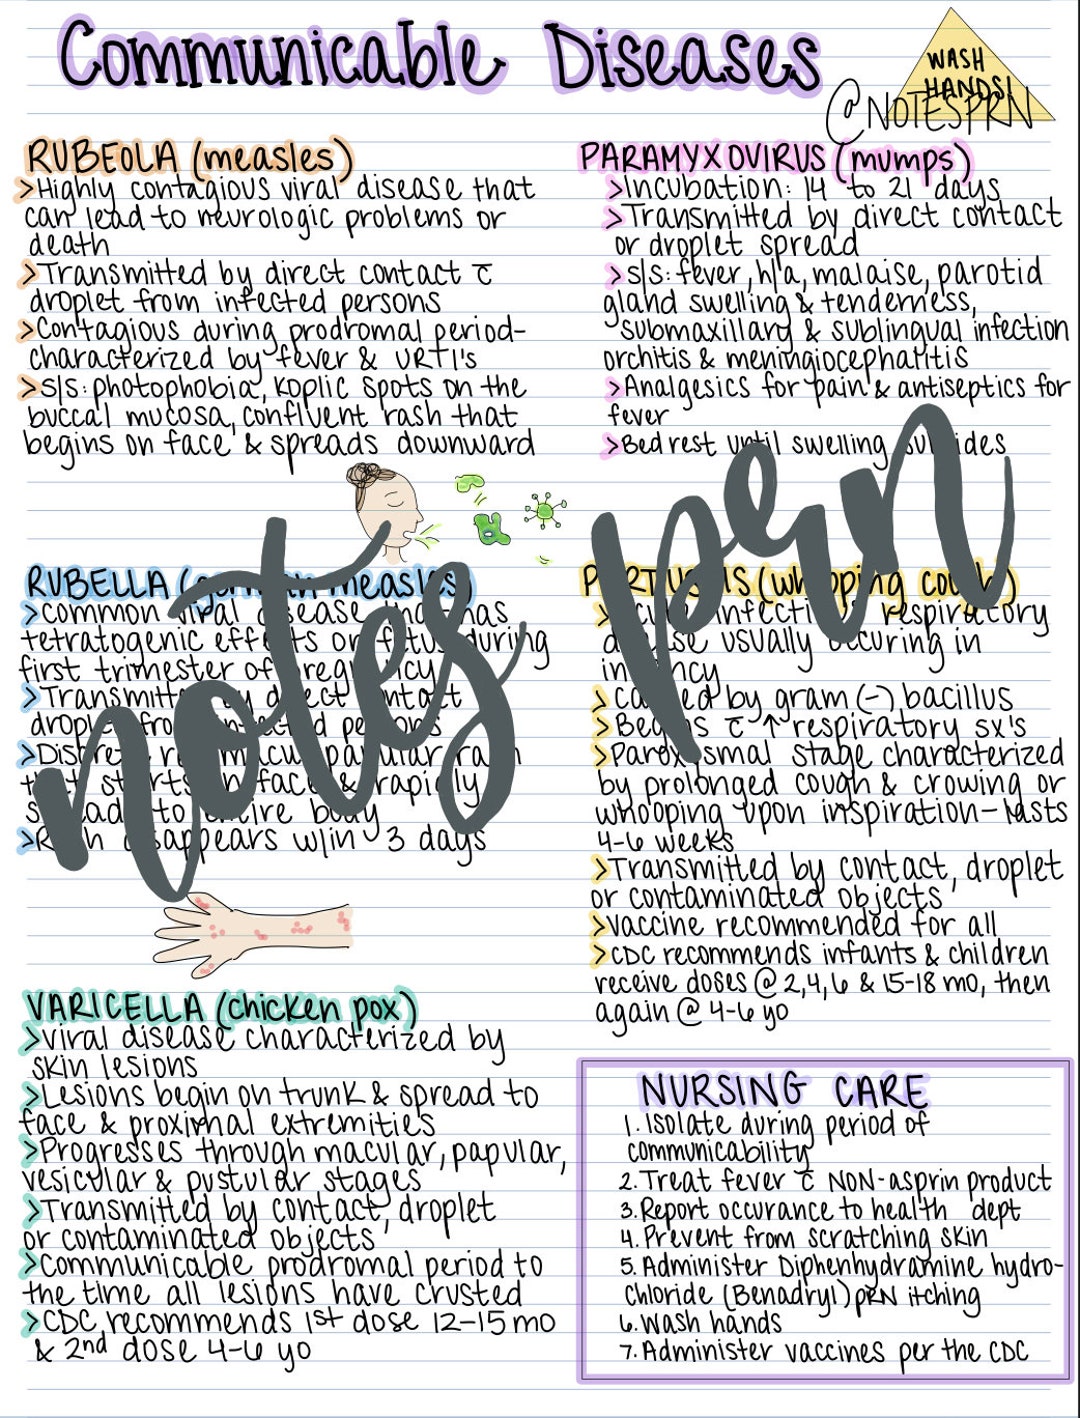 Communicable Diseases
WASH
HANDS!
@NOTESPRN
RUBEOLA (measles)
>Highly contagious viral disease that
can lead to neurologic problems or
death
>Transmitted by direct contact c̄
droplet from infected persons
>Contagious during prodromal period-
characterized by fever & URTI's
>S/S: photophobia, Koplic spots on the
buccal mucosa, confluent rash that
begins on face & spreads downward
PARAMYXOVIRUS (mumps)
>Incubation: 14 to 21 days
>Transmitted by direct contact
or droplet spread
>S/S: fever, h/a, malaise, parotid
gland swelling & tenderness,
submaxillary & sublingual infection
orchitis & meningiocephalitis
>Analgesics for pain & antiseptics for
fever
>Bed rest until swelling subsides
notes prn
RUBELLA (german measles)
>Common viral disease that has
tetratogenic effects on fetus during
first trimester of pregnancy
>Transmitted by direct contact
droplet from infected persons
>Discrete red maculopapular rash
that starts on face & rapidly
spreads to entire body
>Rash disappears w/in 3 days
PERTUSSIS (whooping cough)
>Acute infectious respiratory
disease usually occuring in
infancy
>Caused by gram (-) bacillus
>Begins c̄ ↑ respiratory sx's
>Paroxysmal stage characterized
by prolonged cough & crowing or
whooping upon inspiration- lasts
4-6 weeks
>Transmitted by contact, droplet
or contaminated objects
>Vaccine recommended for all
>CDC recommends infants & children
receive doses @ 2,4,6 & 15-18 mo, then
again @ 4-6 yo
VARICELLA (chicken pox)
>Viral disease characterized by
skin lesions
>Lesions begin on trunk & spread to
face & proximal extremities
>Progresses through macular, papular,
vesicular & pustular stages
>Transmitted by contact, droplet
or contaminated objects
>Communicable prodromal period to
the time all lesions have crusted
>CDC recommends 1st dose 12-15 mo
& 2nd dose 4-6 yo
NURSING CARE
1. Isolate during period of
communicability
2. Treat fever c̄ NON-asprin product
3. Report occurance to health dept
4. Prevent from scratching skin
5. Administer Diphenhydramine hydro-
chloride (Benadryl) PRN itching
6. Wash hands
7. Administer vaccines per the CDC